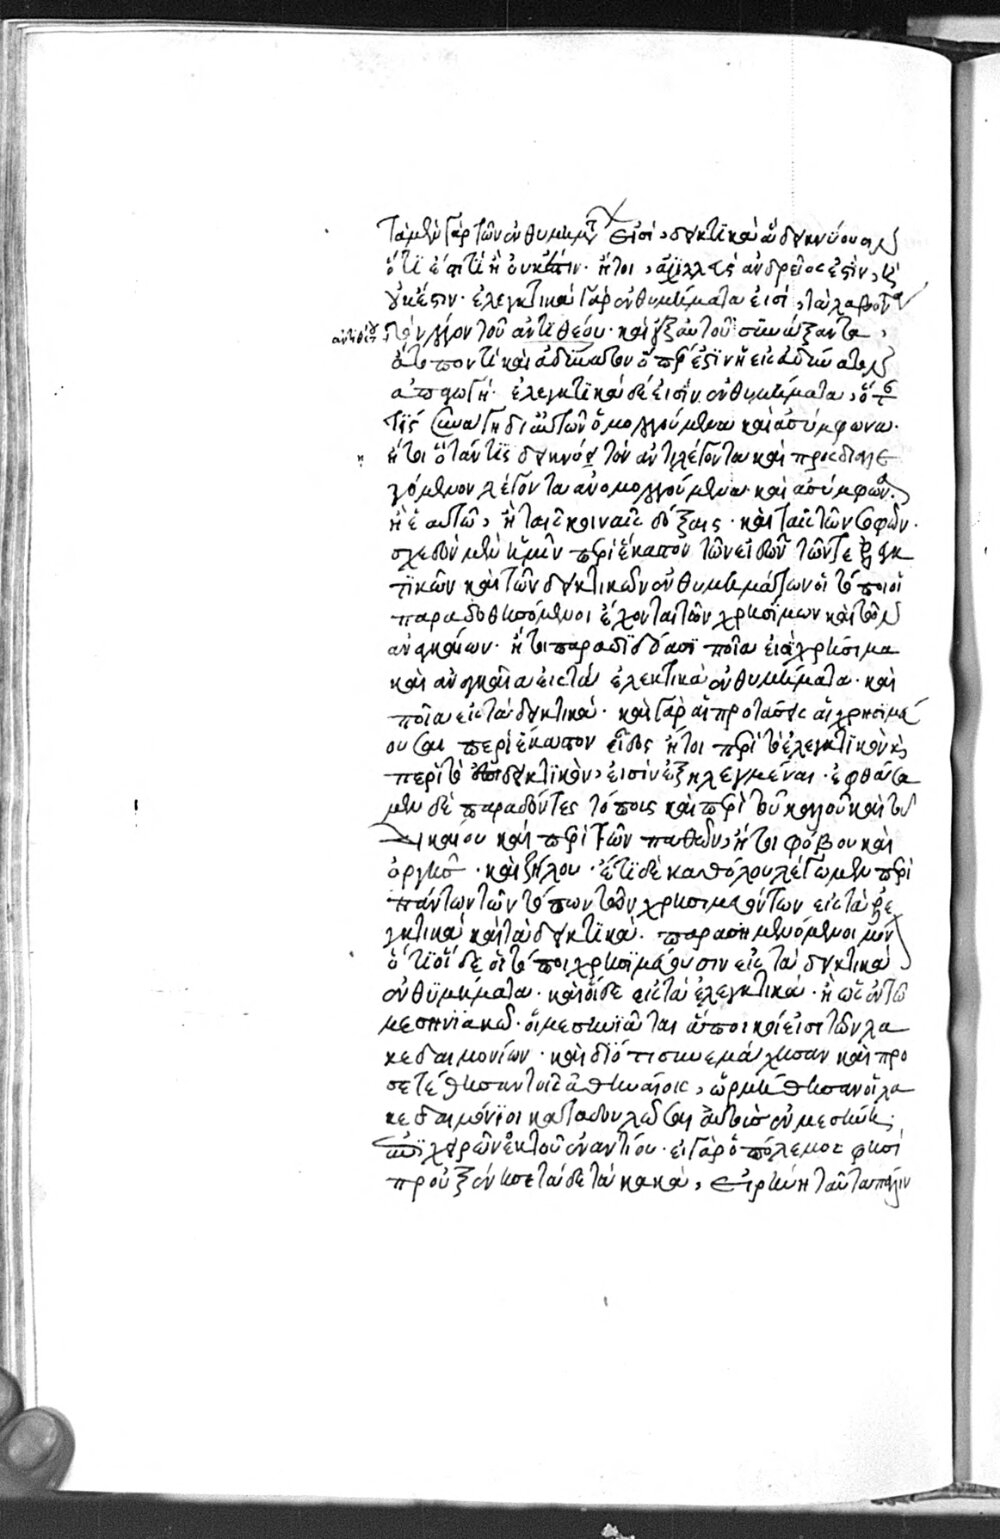 τὰ μὲν γὰρ τῶν ἐνθυμημάτων εἰσὶ, δεικτικὰ ἃ δεικνύουσιν
ὅτι ἔστιν ἢ οὐκ ἔστιν. ἤτοι, ἀχιλλεὺς ἀνδρεῖος ἐστὶν, ἢ
οὐκ ἔστιν. ἐλεγκτικὰ γὰρ ἐνθυμήματα εἰσὶ, τὰ λαβόντα
ἀντιθέτου τὸν λόγον τοῦ ἀντιθέου. καὶ ἐξ αὐτοῦ συνάξαντα,
ἄτοπόν τι καὶ ἀδύνατον ὅπερ ἐστὶν ἡ εἰς ἀδύνατον
ἀπαγωγή. ἐλεγκτικὰ δέ εἰσιν ἐνθυμήματα, ὅτε
τὶς συνάγῃ διὰ τῶν ὁμολογούμενα καὶ ἀσύμφωνα.
ἤτοι ὅταν τὶς δεικνύῃ τὸν ἀντιλέγοντα καὶ προσδιαλε
γόμενον λέγοντα ἀνομολογούμενα καὶ ἀσύμφωνα
ἢ ἑαυτῷ, ἢ ταῖς κοιναῖς δόξαις. καὶ ταῖς τῶν σοφῶν.
σχεδὸν μὲν ἡμῖν περὶ ἕκαστον τῶν εἰδῶν τῶν τε ἐλεγκ
τικῶν καὶ τῶν δεικτικῶν ἐνθυμημάτων οἱ τόποι οἱ
παραδοθησόμενοι ἔχονται τῶν χρησίμων καὶ τῶν
ἀναγκαίων. ἤτοι παραδίδοασι ποῖα εἰσὶ χρήσιμα
καὶ ἀναγκαῖα εἰς τὰ ἐλεκτικὰ ἐνθυμήματα. καὶ
ποῖα εἰς τὰ δεικτικά. καὶ γὰρ αἱ προτάσεις αἱ χρησιμεύ
ουσαι περὶ ἕκαστον εἶδος ἤτοι περὶ τὸ ἐλεγκτικὸν καὶ
περὶ τὸ δεικτικὸν, εἰσὶν ἐξηλεγμέναι. ἐφθάσα
μεν δὲ παραδόντες τόπους καὶ περὶ τοῦ καλοῦ καὶ τοῦ
δικαίου καὶ περὶ τῶν παθῶν, ἤτοι φόβου καὶ
ὀργῆς. καὶ ζήλου. ἔτι δὲ καθόλου λέγωμεν περὶ
πάντων τῶν τόπων τῶν χρησιμευόντων εἰς τὰ ἐλε
γκτικὰ καὶ τὰ δεικτικά. παρασημενόμενοι μὲν
ὅτι οἵδε οἱ τόποι χρησιμεύουσιν εἰς τὰ δεικτικὰ
ἐνθυμήματα. καὶ οἵδε εἰς τὰ ἐλεγκτικά. ἢ ὡς ἐν τῷ
μεσηνιακῷ. οἱ μεσηνιᾶται ἄποικοι εἰσὶ τῶν λα
κεδαιμονίων. καὶ διότι συνεμάχησαν καὶ προ
σετέθησαν τοῖς ἀθηναίοις, ὥρμήθησαν οἱ λα
κεδαιμόνιοι καταδουλεῦσαι
ἐπιχειρῶν ἐκ τοῦ ἐναντίου. εἰ γὰρ ὁ πόλεμος φησὶ
προὐξένησε τάδε τὰ κακὰ, εἰρήνη ταῦτα πάλιν